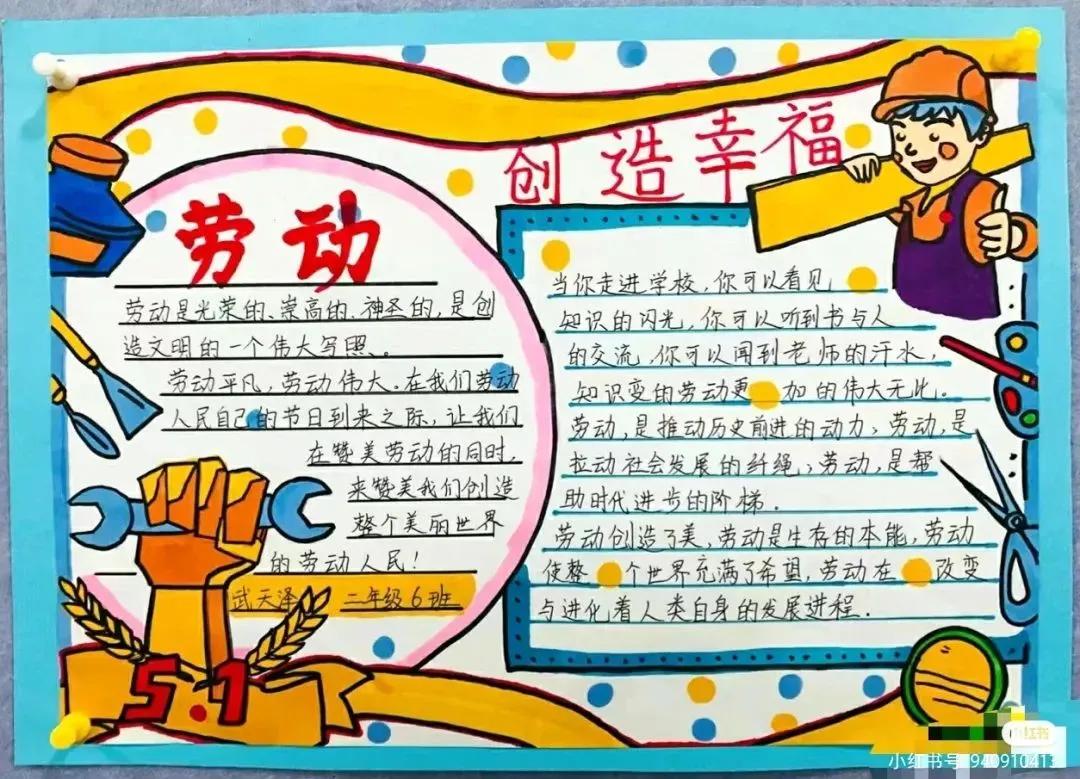 创造幸福
劳动
劳动是光荣的、崇高的、神圣的，是创
造文明的一个伟大写照、。
劳动平凡，劳动伟大。在我们劳动
人民自己的节日到来之际，让我们
在赞美劳动的同时，
来赞美我们创造
整个美丽世界
的劳动人民！
武天泽 二年级6班
5.1
当你走进学校，你可以看见
知识的闪光，你可以听到书与人
的交流，你可以闻到老师的汗水，
知识变的劳动更加的伟大无比。
劳动，是推动历史前进的动力；劳动，是
拉动社会发展的纤绳；劳动，是帮
助时代进步的阶梯．
劳动创造了美，劳动是生存的本能，劳动
使整个世界充满了希望，劳动在改变
与进化着人类自身的发展进程．
小红书
小红书号 940910413